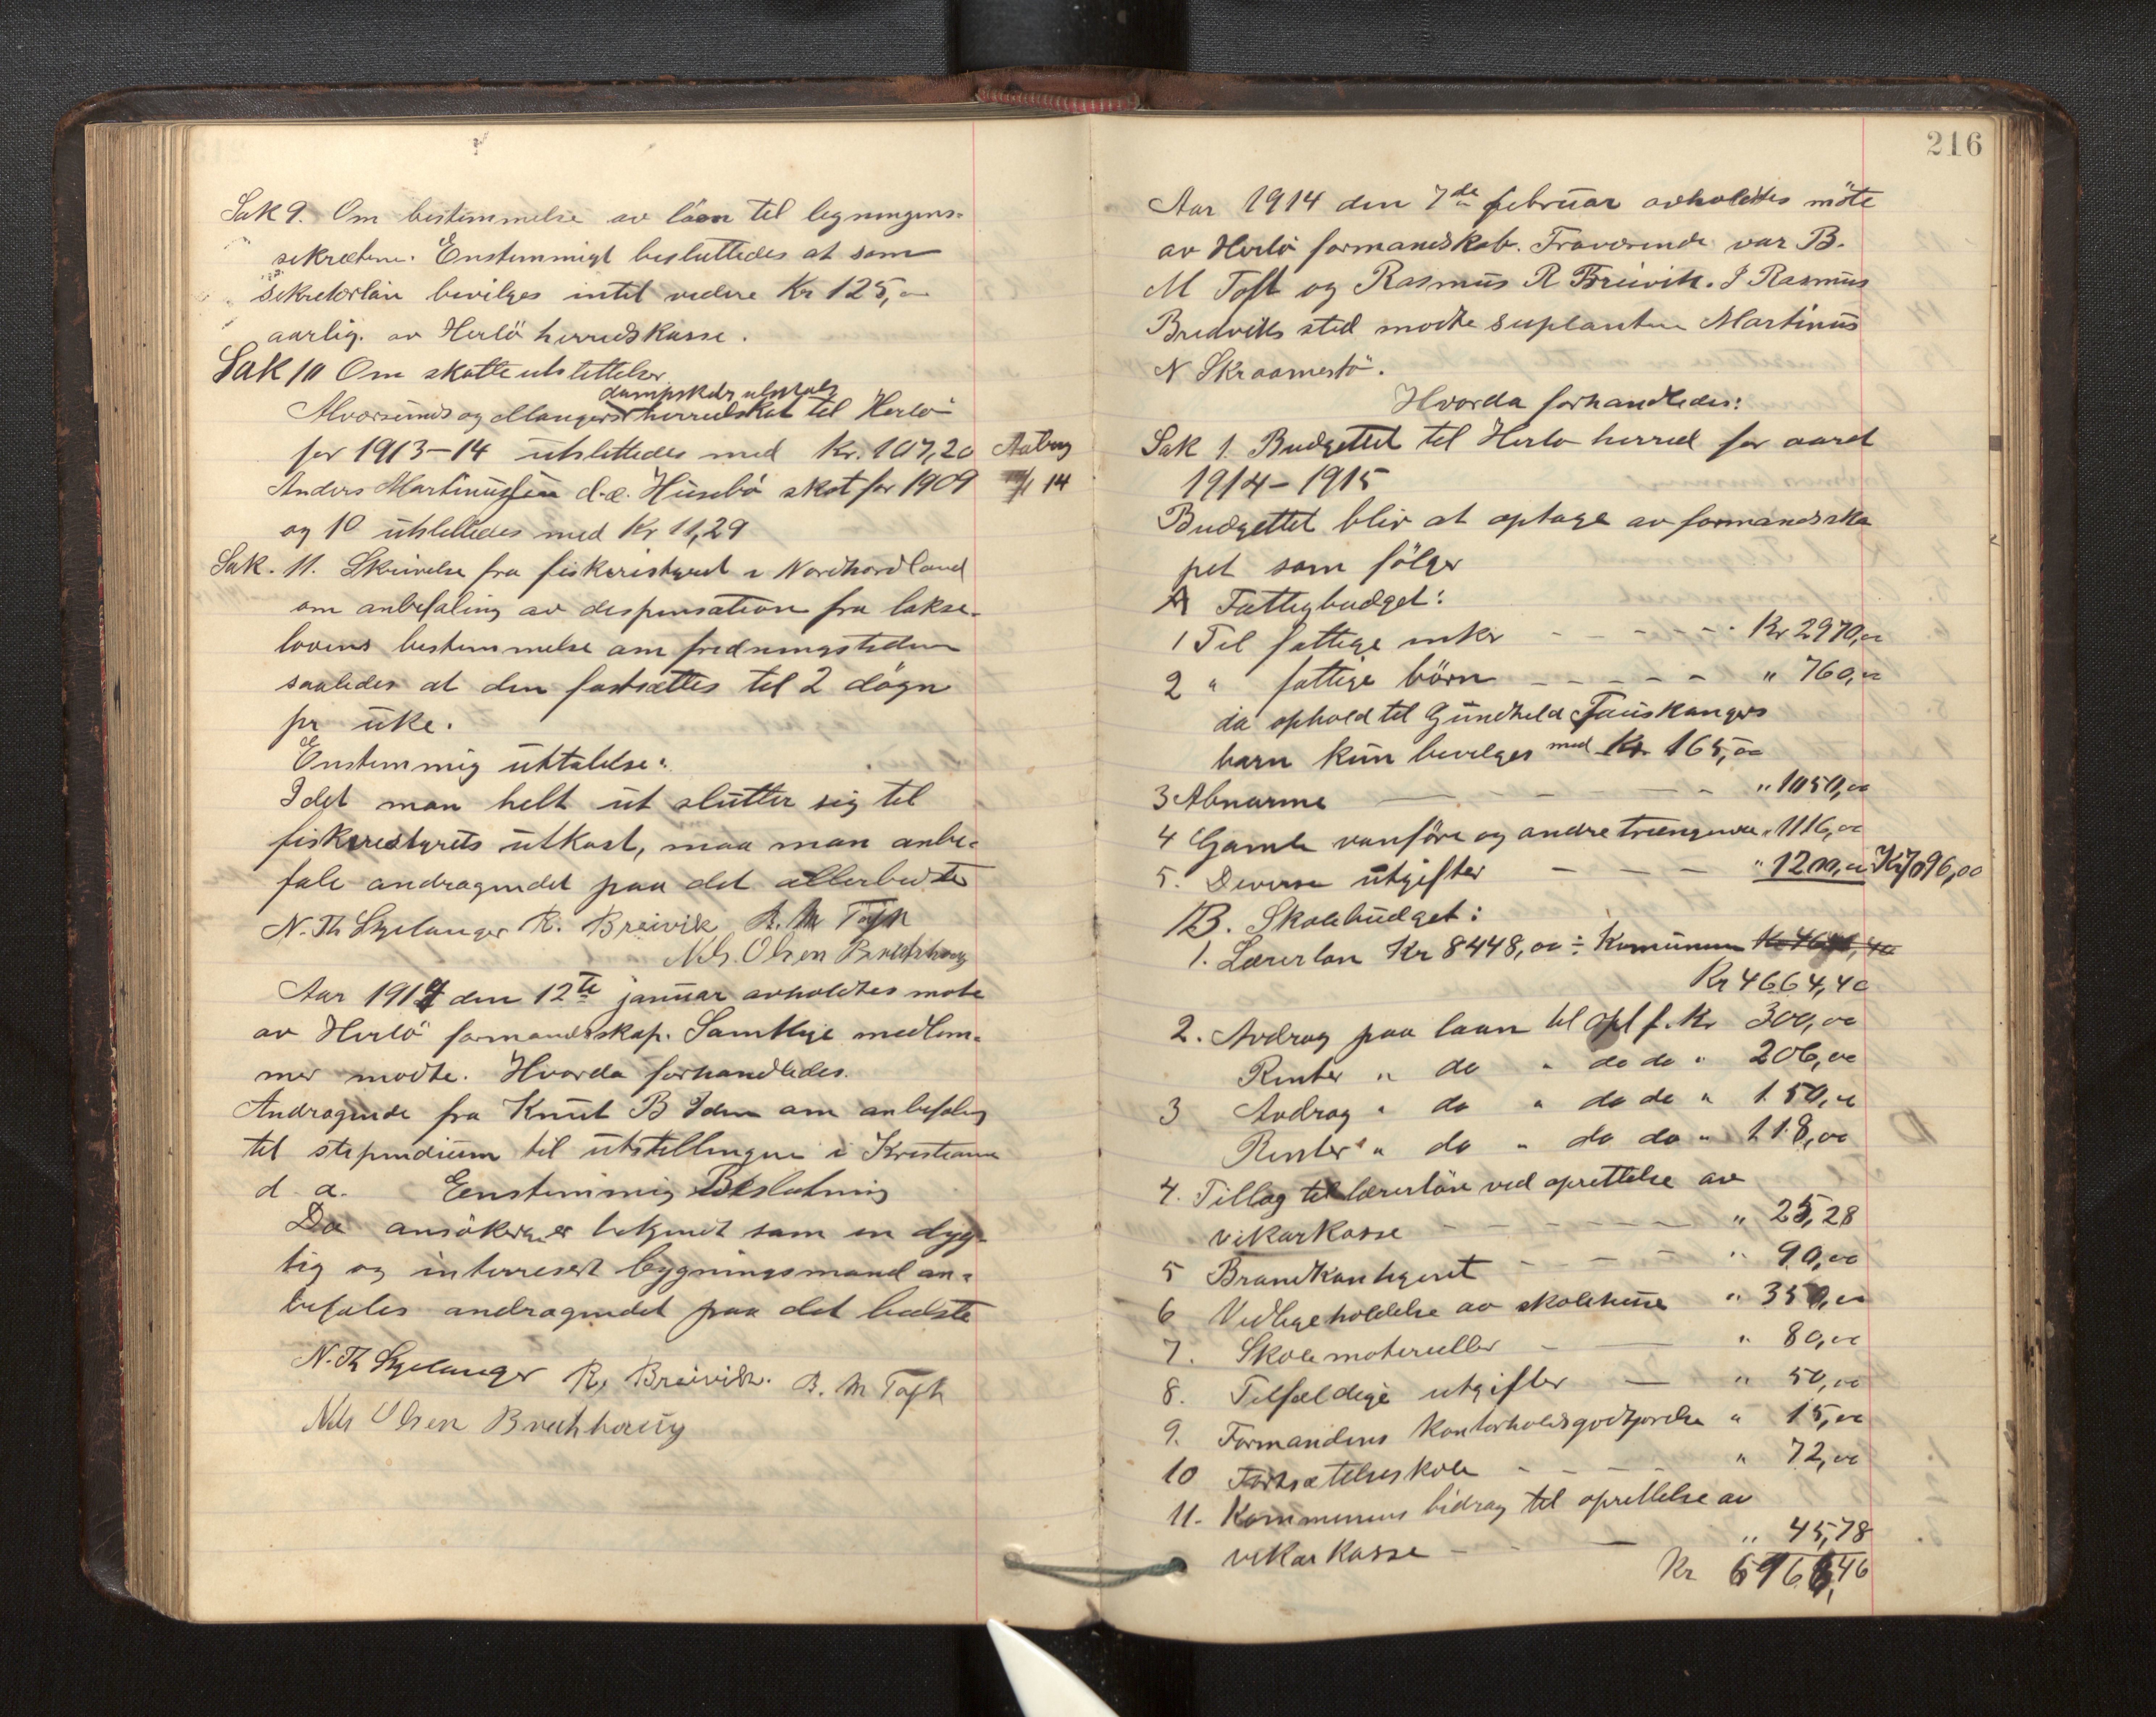 Sak 9. Om bestemmelse av löon til ligningens-
sekretær. Enstemmigt besluttedes at som
sekretærlön bevilges intil videre Kr 125,00
aarlig. av Herlö herredskasse.
Sak 10 Om skatteutslettelser
dampskibsutgifts
Alversunds og Mangers herredskat til Herlö
for 1913–14 utslettedes med Kr. 107,20
Anders Martinussen d.æ. Husebö skat for 1909
14
og 10 utslettedes med Kr 11,29
Sak. 11. Skrivelse fra fiskeristyret i Nordhordland
om anbefaling av dispensation fra lakse-
lovens bestemmelse om fredningstiden
saaledes at den fastsættes til 2 dögn
pr uke.
Enstemmig uttalelse:
Idet man helt ut slutter sig til
fiskeristyrets utkast, maa man anbe-
fale andragendet paa det allerbedste
N. Th Skjelanger R. Breivik B. M Toft
Nils Olsen Brathhoug
Aar 1914 den 12te januar avholdtes möte
av Herlö formandskap. Samtlige medlem-
mer mödte. Hvorda forhandledes.
Andragende fra Knut B Iden om anbefaling
til stipendium til utstillingen i Kristiania
d. a. Eenstemmig Beslutning
Da ansökeren er bekjendt som en dyg-
tig og interresert bygningsmand an-
befales andragendet paa det bedste
N. Th Skjelanger R. Breivik. B. M Toft
Nils Olsen Brathhoug
216
Aar 1914 den 7de februar avholdtes möte
av Herlö formandskab. Fraværende var B.
M Toft og Rasmus R Breivik. I Rasmus
Breiviks sted mödte suplanten Martinus
N Skraamestö.
Hvorda forhandledes:
Sak 1. Budgettet til Herlo herred for aaret
1914–1915
Budgettet blir at optage av formandska
pet som fölger
A Fattigbudget:
1 Til fattige enker Kr 2970,00
2 " fattige börn " 760,00
da ophold til Gundhild Fauskangers
barn kun bevilges med Kr 165,00
3 Abnorme " 1050,00
4 Gamle vanföre og andre trængende " 1116,00
5. Diverse utgifter " 1200,00 Kr 7096,00
B. Skolebudget:
1. Lærerlön Kr 8448,00 ÷ Komunen
Kr 4664,40
2. Avdrag paa laan til opl f. Kr 300,00
Renter " do " do do " 206,00
3 Avdrag " do " do do " 150,00
Renter " do " do do " 118,00
4. Tillæg til lærerlön ved oprettelse av
vikarkasse " 25,28
5 Brandkontigent " 90,00
6 Vedligeholdelse av skolehuse " 350,00
7. Skolemateriller " 80,00
8. Tilfældige utgifter " 50,00
9. Formandens kontorholdsgodtgjörelse " 15,00
10 Fortsættelseskole " 72,00
11. Kommunens bidrag til oprettelse av
vikarkasse " 45,78
Kr 6166,46